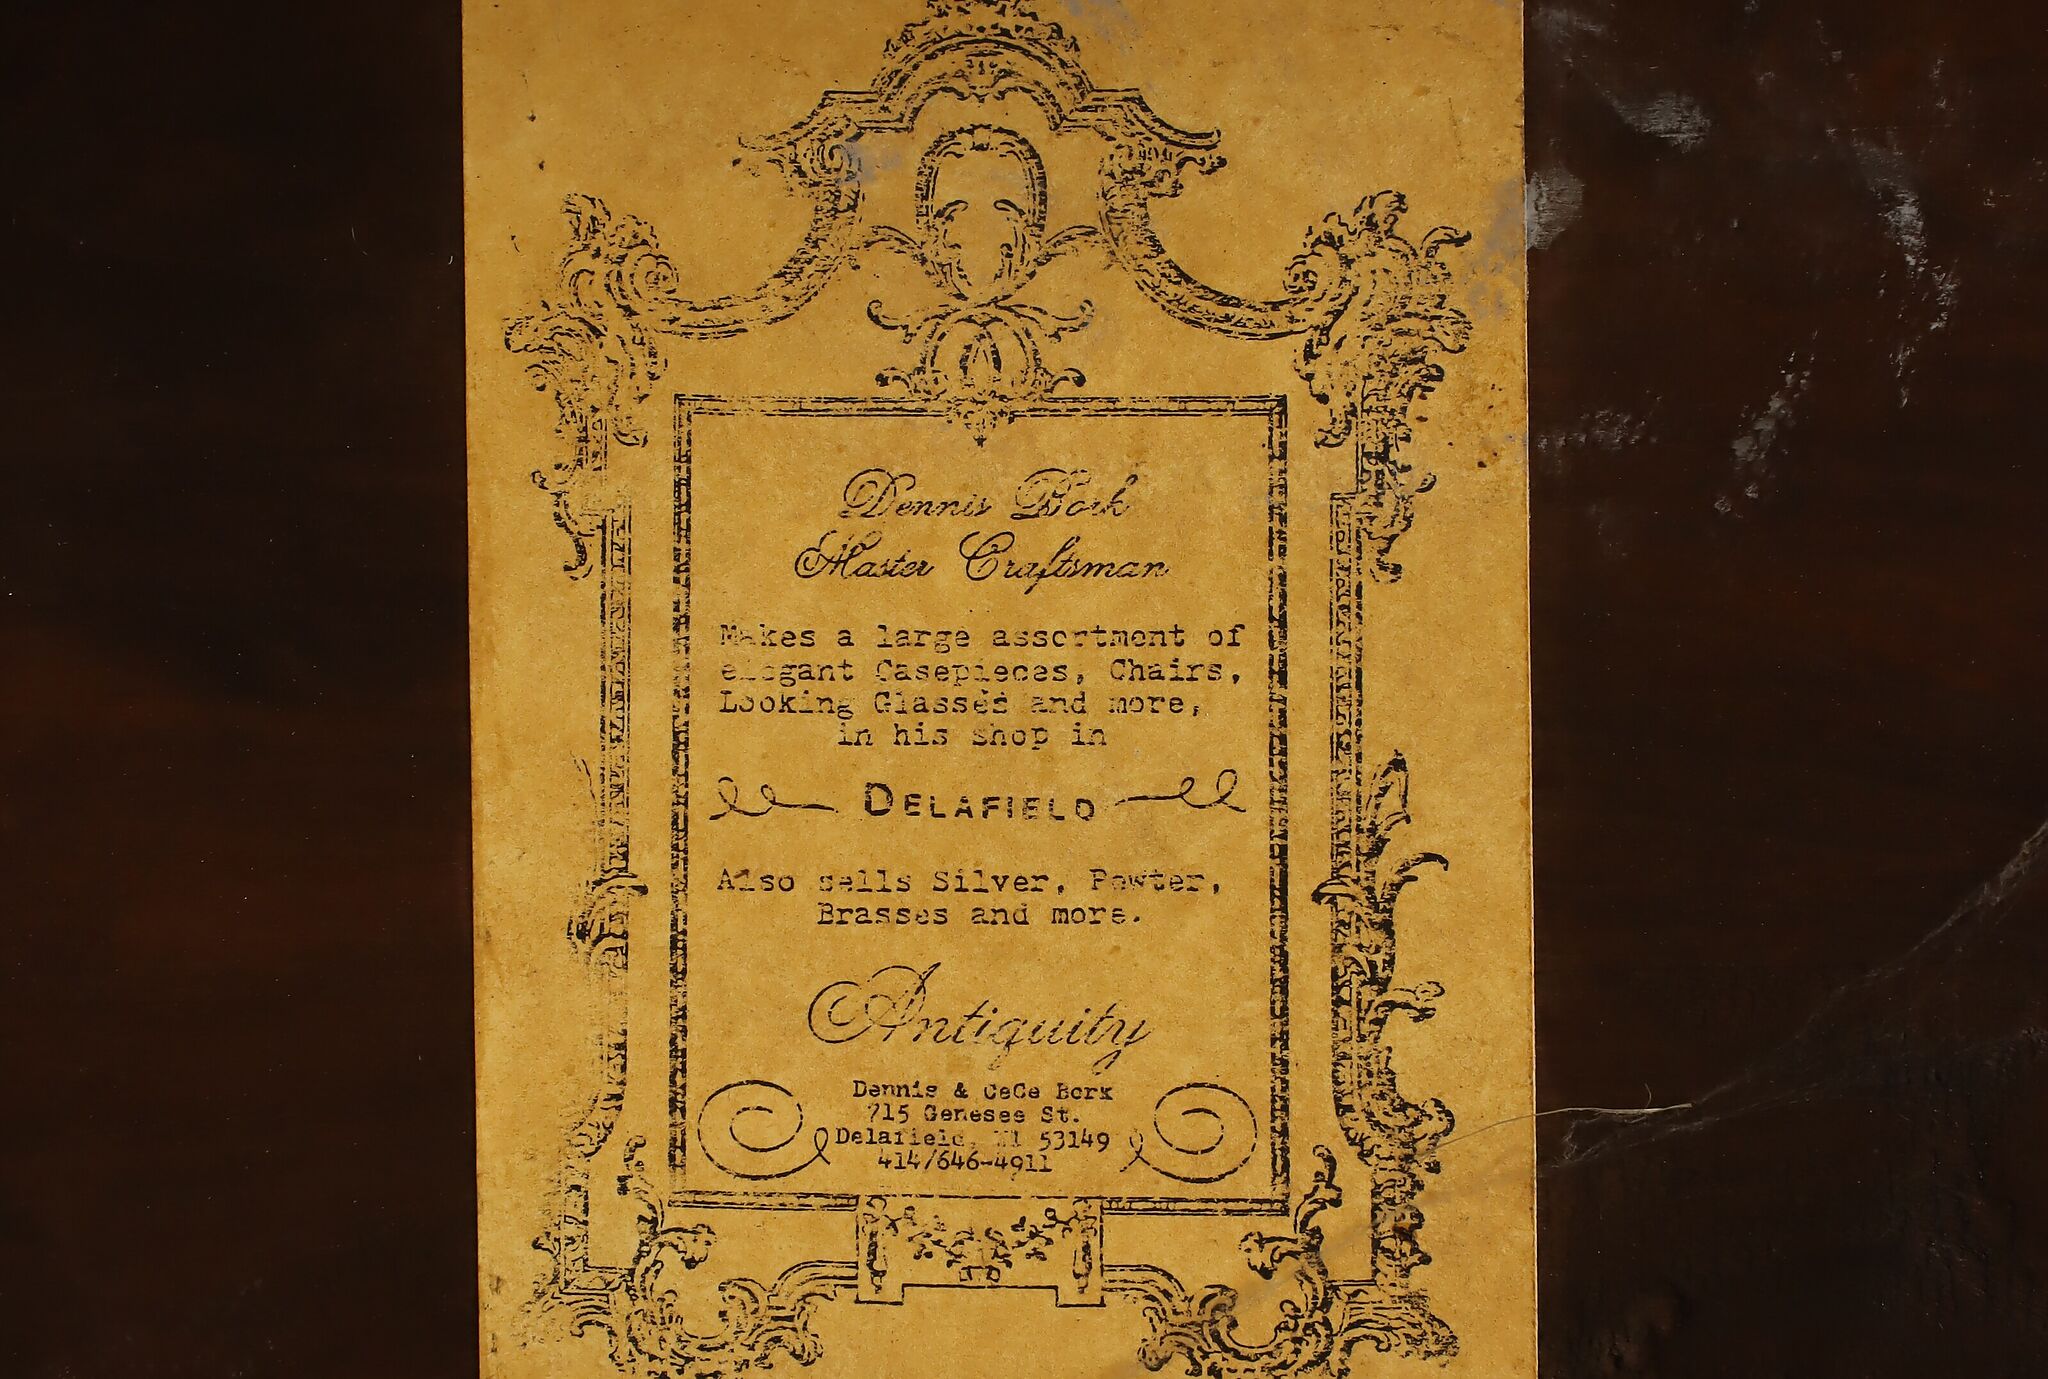 Dennis Bork
Master Craftsman
Makes a large assortment of
elegant Casepieces, Chairs,
Looking Glasses and more,
in his shop in
DELAFIELD
Also sells Silver, Pewter,
Brasses and more.
Antiquity
Dennis & CeCe Bork
715 Genesee St.
Delafield, WI 53149
414/646-4911